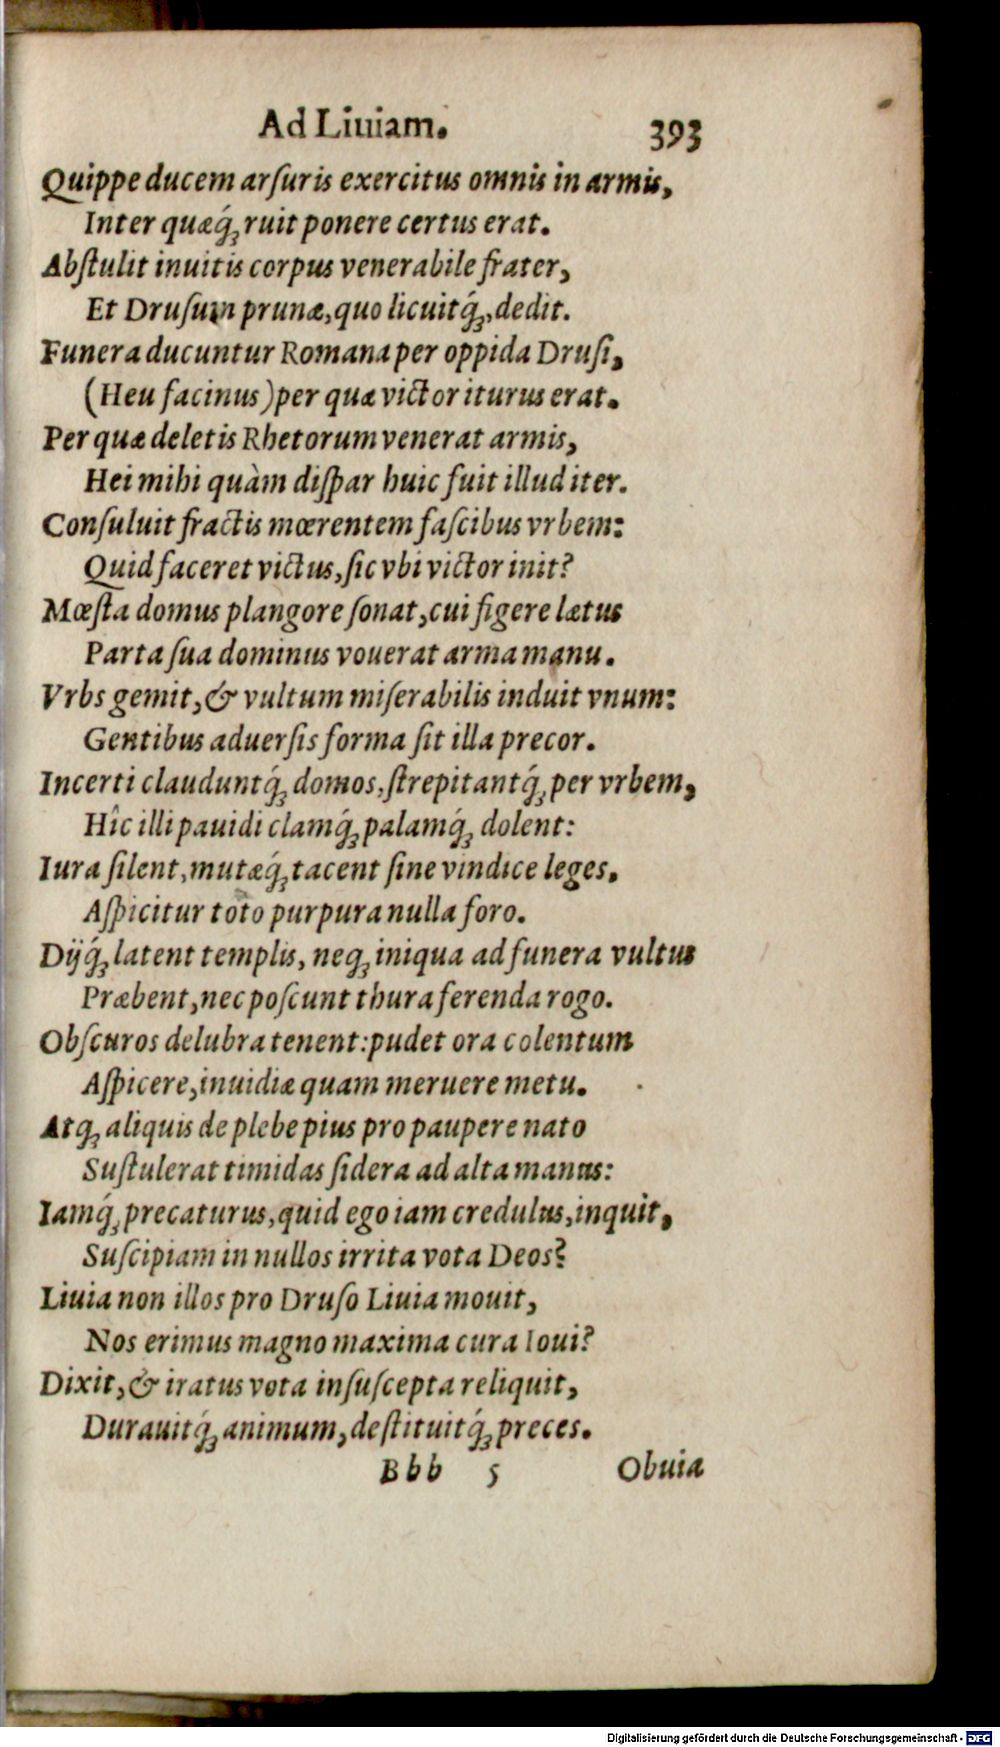 Ad Liuiam. 393
Quippe ducem arſuris exercitus omnis in armis,
Inter quæq́ꝫ ruit ponere certus erat.
Abſtulit inuitis corpus venerabile frater,
Et Druſum prunæ, quo licuitq́ꝫ, dedit.
Funera ducuntur Romana per oppida Druſi,
(Heu facinus) per quæ victor iturus erat.
Per quæ deletis Rhetorum venerat armis,
Hei mihi quàm diſpar huic fuit illud iter.
Conſuluit fractis mœrentem faſcibus vrbem:
Quid faceret victus, ſic vbi victor init?
Mœſta domus plangore ſonat, cui figere lætus
Parta ſua dominus vouerat arma manu.
Vrbs gemit, & vultum miſerabilis induit vnum:
Gentibus aduerſis forma ſit illa precor.
Incerti clauduntq́ꝫ domos, ſtrepitantq́ꝫ per vrbem,
Hîc illi pauidi clamq́ꝫ palamq́ꝫ dolent:
Iura ſilent, mutæq́ꝫ tacent ſine vindice leges.
Aſpicitur toto purpura nulla foro.
Dijq́ꝫ latent templis, neqꝫ iniqua ad funera vultus
Præbent, nec poſcunt thura ferenda rogo.
Obſcuros delubra tenent: pudet ora colentum
Aſpicere, inuidiæ quam meruere metu.
Atqꝫ aliquis de plebe pius pro paupere nato
Suſtulerat timidas ſidera ad alta manus:
Iamq́ꝫ precaturus, quid ego iam credulus, inquit,
Suſcipiam in nullos irrita vota Deos?
Liuia non illos pro Druſo Liuia mouit,
Nos erimus magno maxima cura Ioui?
Dixit, & iratus vota inſuſcepta reliquit,
Durauitq́ꝫ animum, deſtituitq́ꝫ preces.
Bbb 5 Obuia
Digitalisierung gefördert durch die Deutsche Forschungsgemeinschaft - DFG